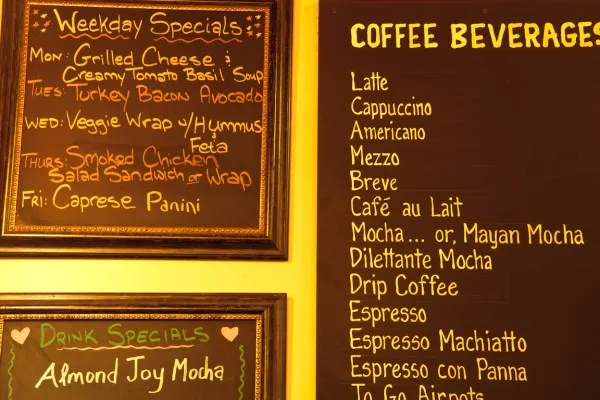 Weekday Specials
Mon: Grilled Cheese &
Creamy Tomato Basil Soup
Tues: Turkey Bacon Avocado
Wed: Veggie Wrap w/Hummus
& Feta
Thurs: Smoked Chicken
Salad Sandwich or Wrap
Fri: Caprese Panini
Drink Specials
Almond Joy Mocha
COFFEE BEVERAGES
Latte
Cappuccino
Americano
Mezzo
Breve
Café au Lait
Mocha... or, Mayan Mocha
Dilettante Mocha
Drip Coffee
Espresso
Espresso Machiatto
Espresso con Panna
To Go Airpots